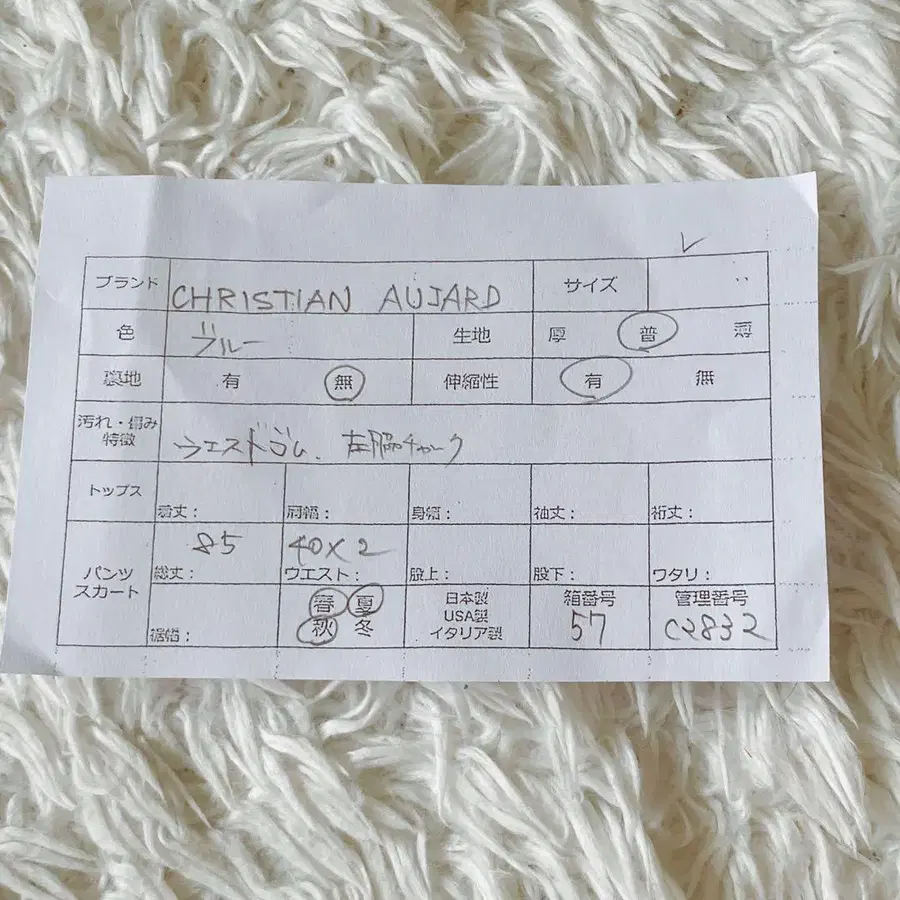 ブランド CHRISTIAN AUJARD サイズ
色 ブルー 生地 厚 普 薄
裏地 有 無 伸縮性 有 無
汚れ・傷み
特徴 ウエストゴム、左脇チャーク
トップス 着丈: 肩幅: 身幅: 袖丈: 裄丈:
85 40×2
パンツ
スカート 総丈: ウエスト: 股上: 股下: ワタリ:
裾幅: 春 夏
秋 冬
日本製
USA製
イタリア製
箱番号
57
管理番号
C2832